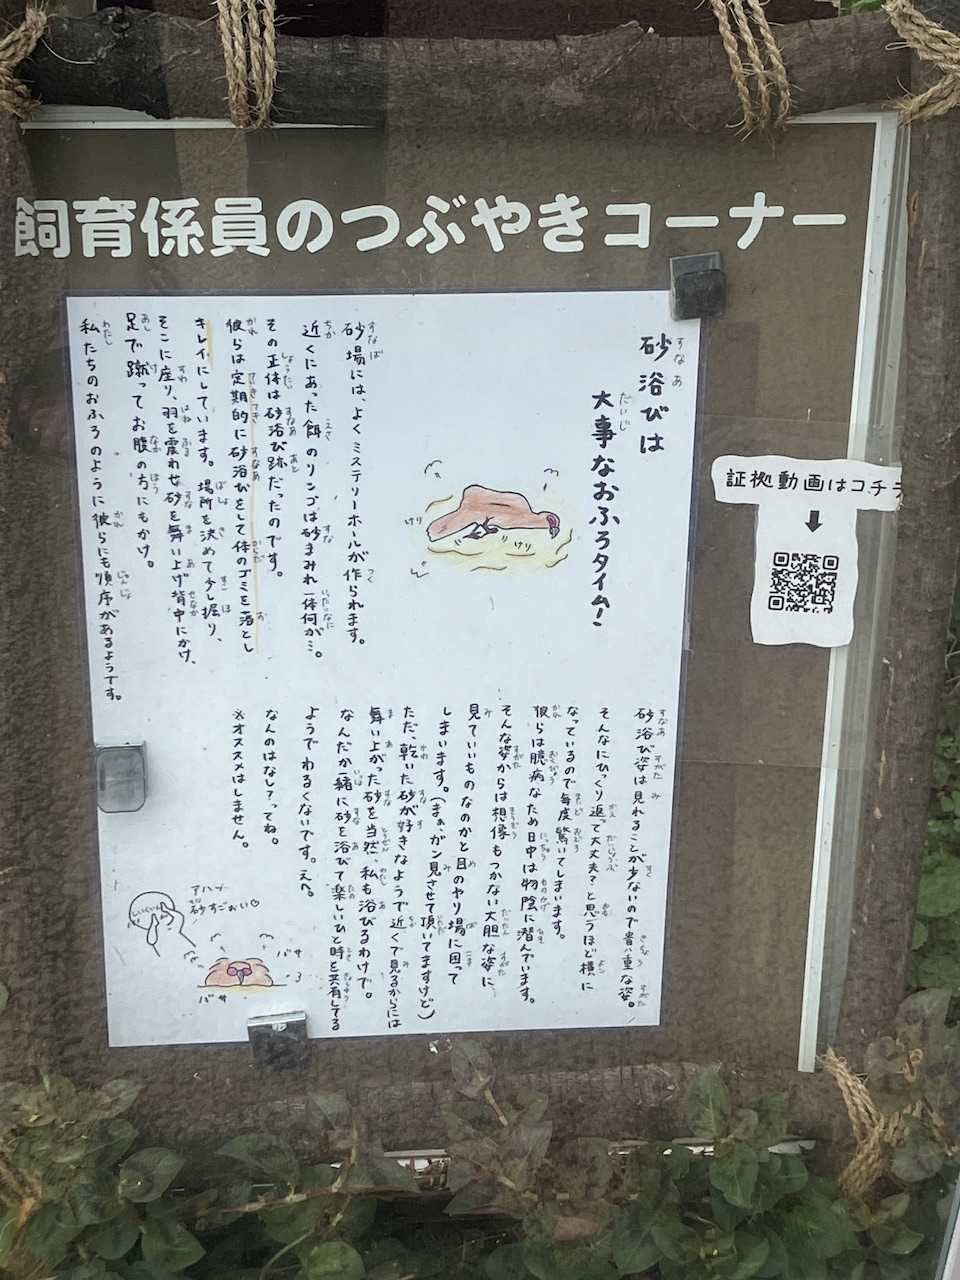 飼育係員のつぶやきコーナー
砂浴びは
大事なおふろタイム！
砂場には、よくミステリーホールが作られます。
近くにあった餌のリンゴは砂まみれ一体何が…。
その正体は砂浴び跡だったのです。
彼らは定期的に砂浴びをして体のゴミを落とし
キレイにしています。場所を決めて少し掘り、
そこに座り、羽を震わせ砂を舞い上げ背中にかけ、
足で蹴ってお腹の方にもかけ。
私たちのおふろのように彼らにも順序があるようです。
けり
けり
砂浴び姿は見れることが少ないので貴重な姿。
そんなにひっくり返って大丈夫？と思うほど横に
なっているので毎度驚いてしまいます。
彼らは臆病なため日中は物陰に潜んでいます。
そんな姿からは想像もつかない大胆な姿に
見ていいものなのかと目のやり場に困って
しまいます。(まぁ、ガン見させて頂いてますけど)
ただ、乾いた砂が好きなようで近くで見るからには
舞い上がった砂を当然、私も浴びるわけで。
なんだか一緒に砂を浴びて楽しいひと時を共有してる
ようでわるくないです。えへ。
なんのはなし？ってね。
※オススメはしません。
アハッ
砂すごおい♡
バサ
バサ
証拠動画はコチラ